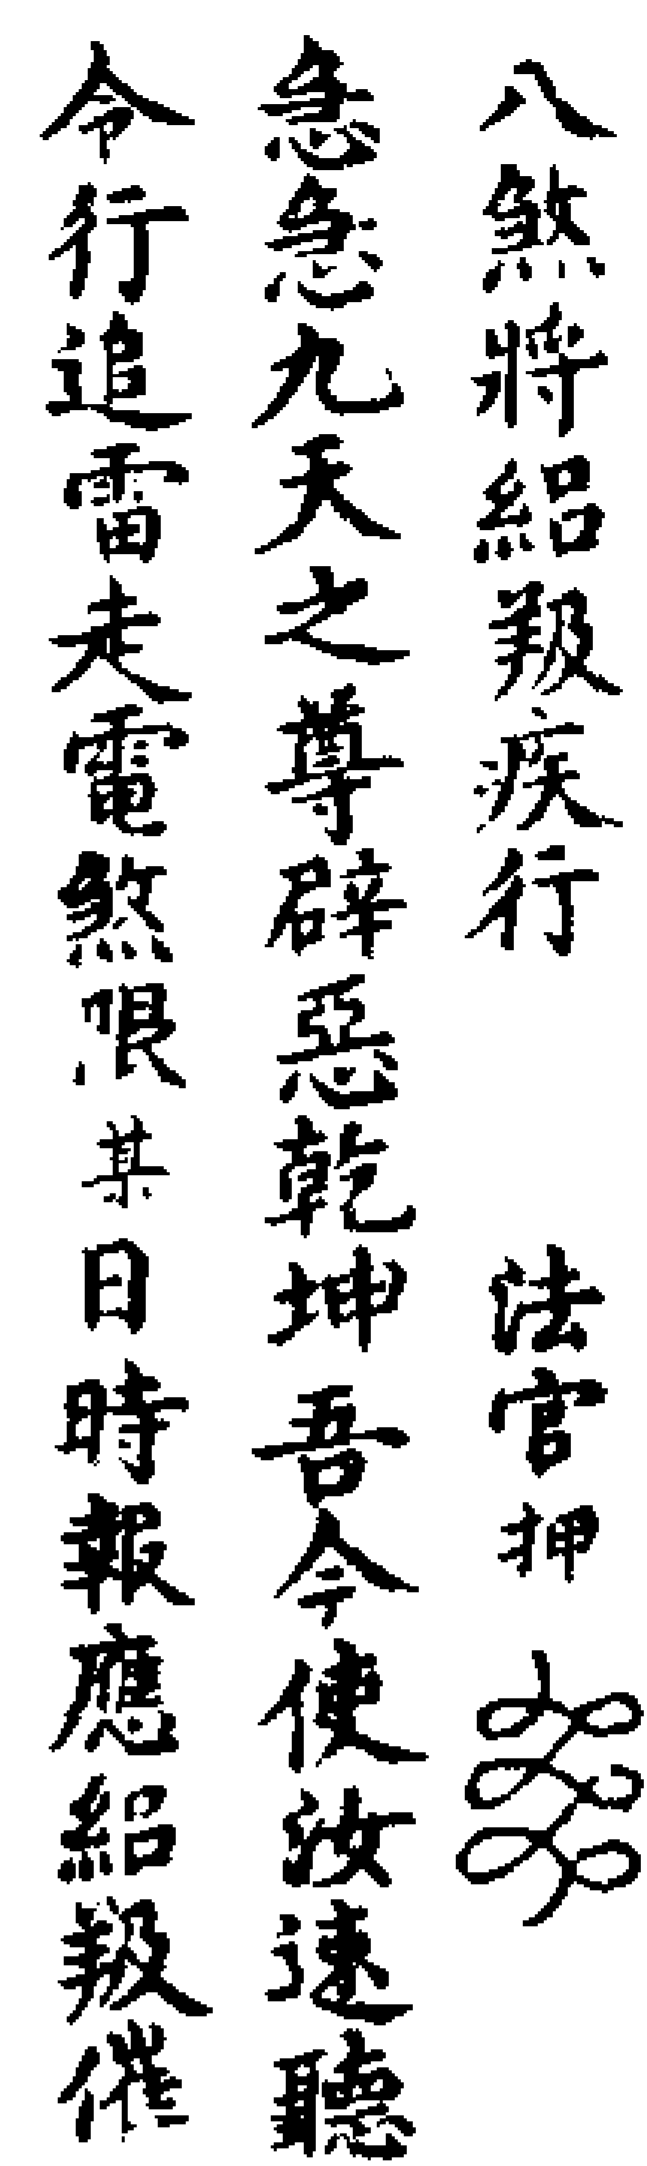 八煞將絽疾行 法官押
急急九天之尊辟惡乾坤吾今使汝速聽
令行追雷走電煞限某日時報應絽催